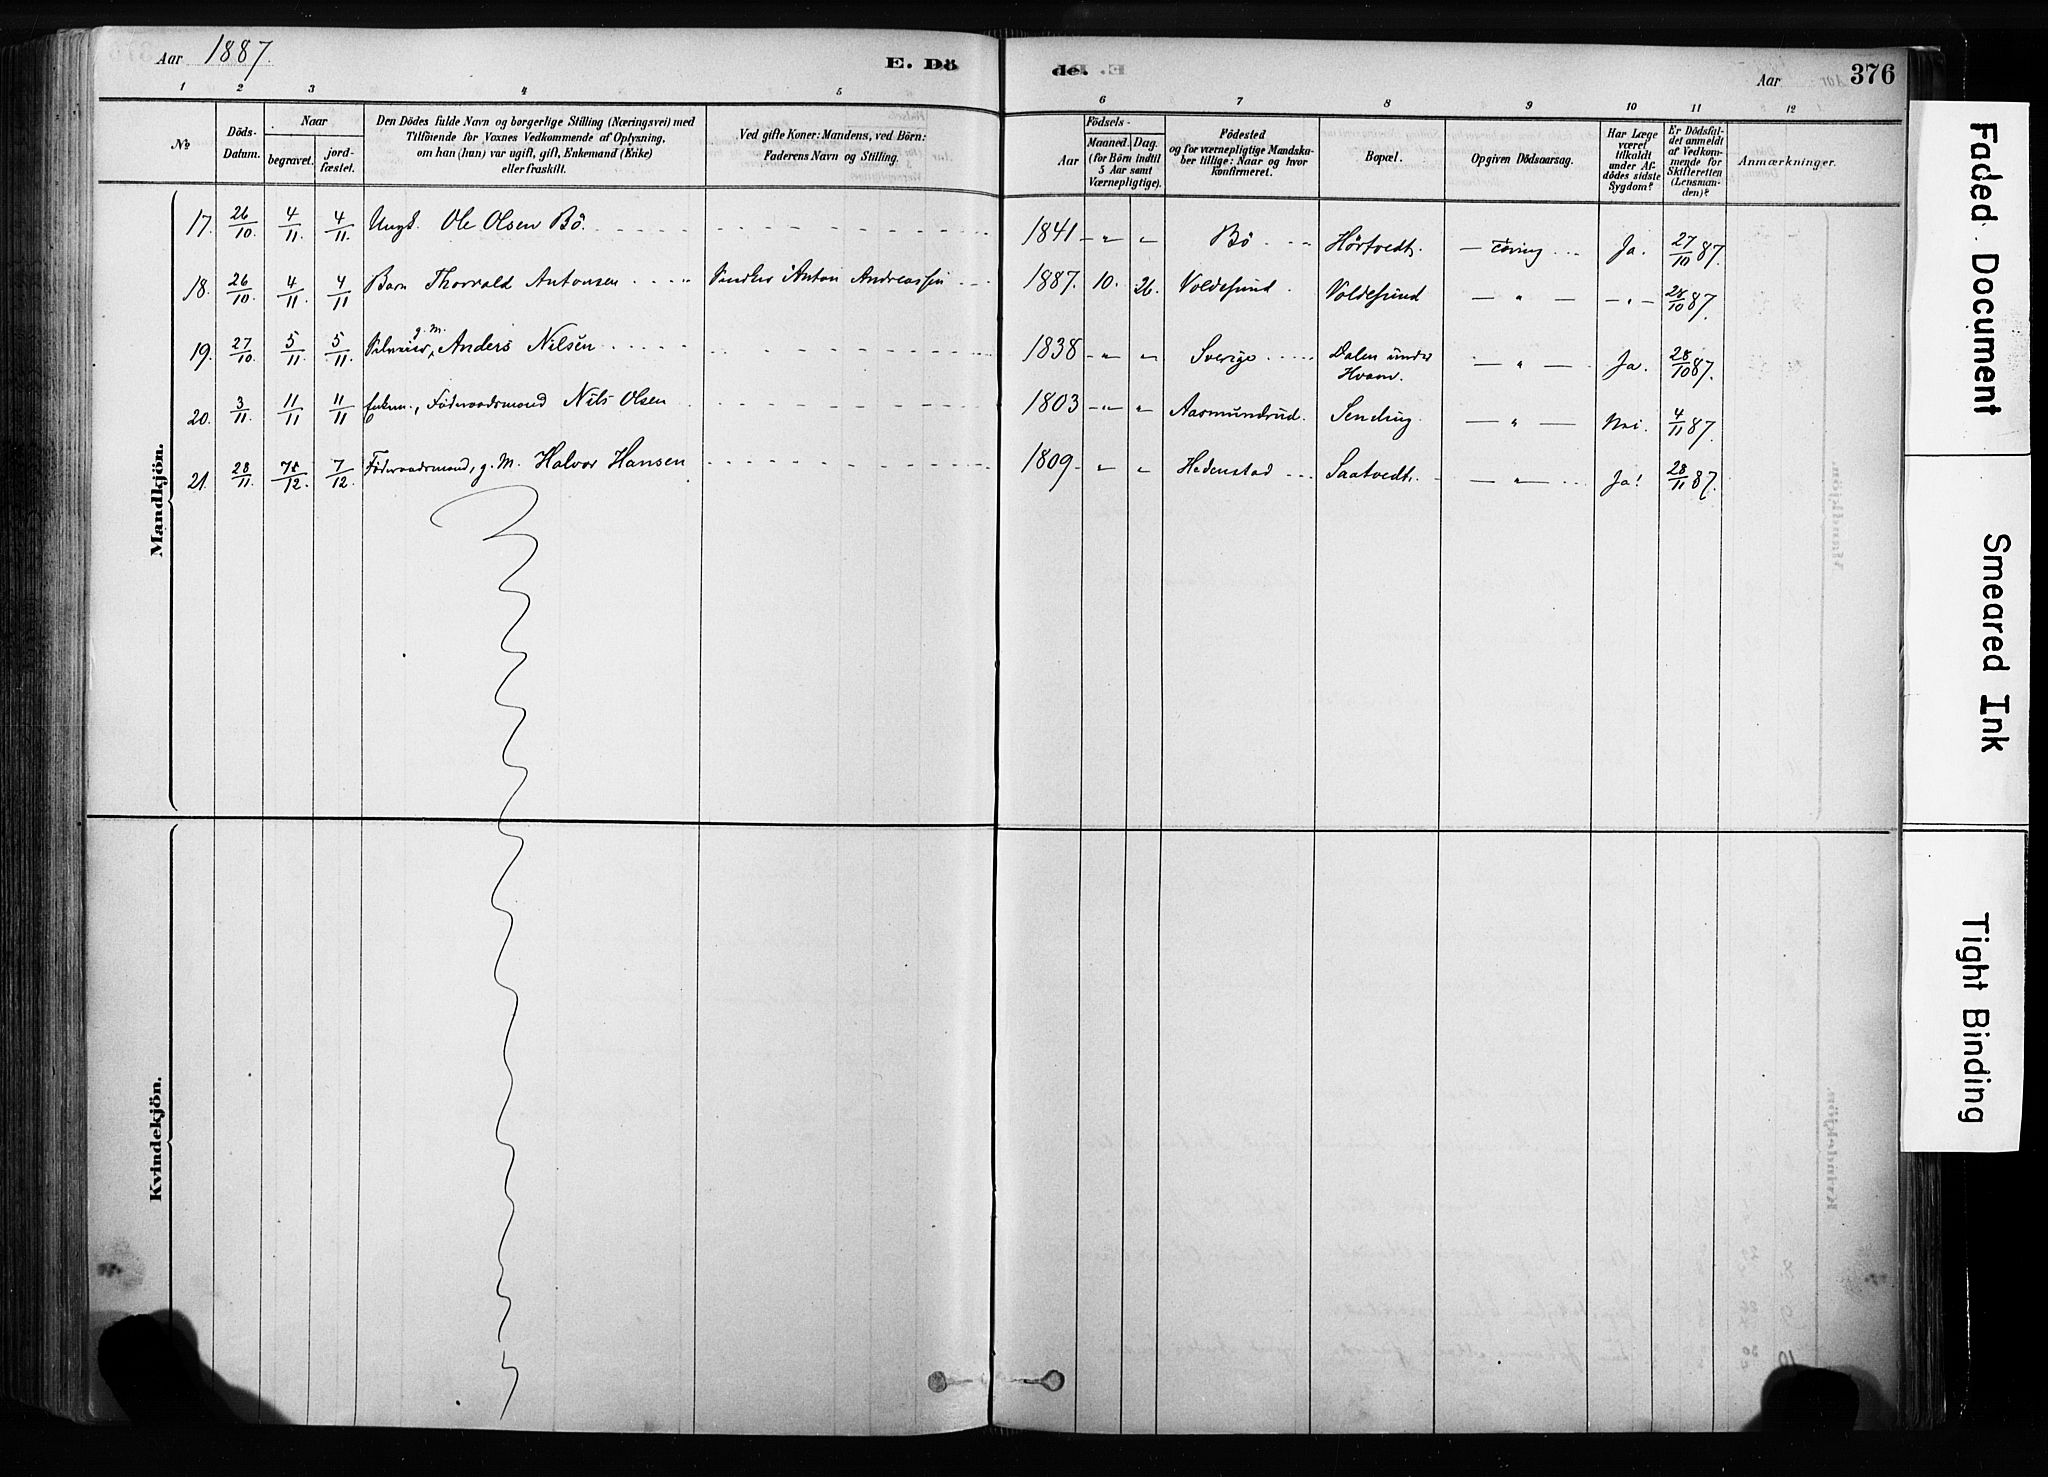 Aar 1887.
E. Dö
de.
Aar
376
1 2 3 4 5 6 7 8 9 10 11 12
№
Döds-
Datum.
Naar
begravet.
jord-
fæstet.
Den Dödes fulde Navn og borgerlige Stilling (Næringsvei) med
Tilföiende for Voxnes Vedkommende af Oplysning,
om han (hun) var ugift, gift, Enkemand (Enke)
eller fraskilt.
Ved gifte Koner: Mandens, ved Börn:
Faderens Navn og Stilling.
Födsels-
Aar
Maaned. Dag.
(for Börn indtil
5 Aar samt
Værnepligtige).
Födested
og for værnepligtige Mandska-
ber tillige: Naar og hvor
konfirmeret.
Bopæl.
Opgiven Dödsaarsag.
Har Læge
været
tilkaldt
under Af-
dödes sidste
Sygdom?
Er Dödsfal-
det anmeldt
af Vedkom-
mende for
Skifteretten
(Lensman-
den)?
Anmærkninger.
Mandkjön.
17. 26/10. 4/11. 4/11. Ungk. Ole Olsen Bö. 1841 - " " Bö Hörtvedt. Ja. 27/10 87.
18. 26/10. 4/11. 4/11 Barn Thorvald Antonsen Anton Andreassen 1887. 10. 26. Voldesund. Voldesund — " — — " — 28/10 87.
19. 27/10 5/11. 5/11. g. M. Anders Nilsen 1838 - " " Sverige Dalen under
Hvam. — " — Ja. 28/10 87.
20. 3/11. 11/11 11/11 Enkem., Föderaadsmand Nils Olsen 1803 - " " Aasmundrud. — " — Nei. 4/11 87.
21. 28/11. 7/12. 7/12. Föderaadsmand, g. M. Halvor Hansen 1809 - " " Hedenstad Saatvedt. — " — Ja! 28/11 87.
Kvindekjön.
Faded Document
Smeared Ink
Tight Binding